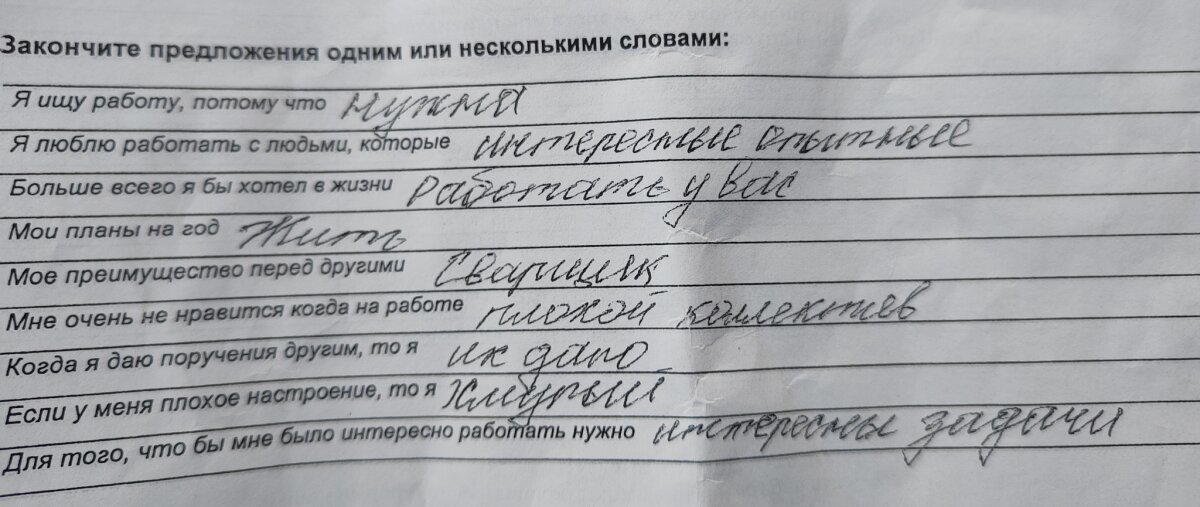 Закончите предложения одним или несколькими словами:
Я ищу работу, потому что нужна
Я люблю работать с людьми, которые интересные опытные
Больше всего я бы хотел в жизни работать у вас
Мои планы на год Жить
Мое преимущество перед другими Сварщик
Мне очень не нравится когда на работе плохой коллектев
Когда я даю поручения другим, то я их даю
Если у меня плохое настроение, то я хмурый
Для того, что бы мне было интересно работать нужно интересны задачи